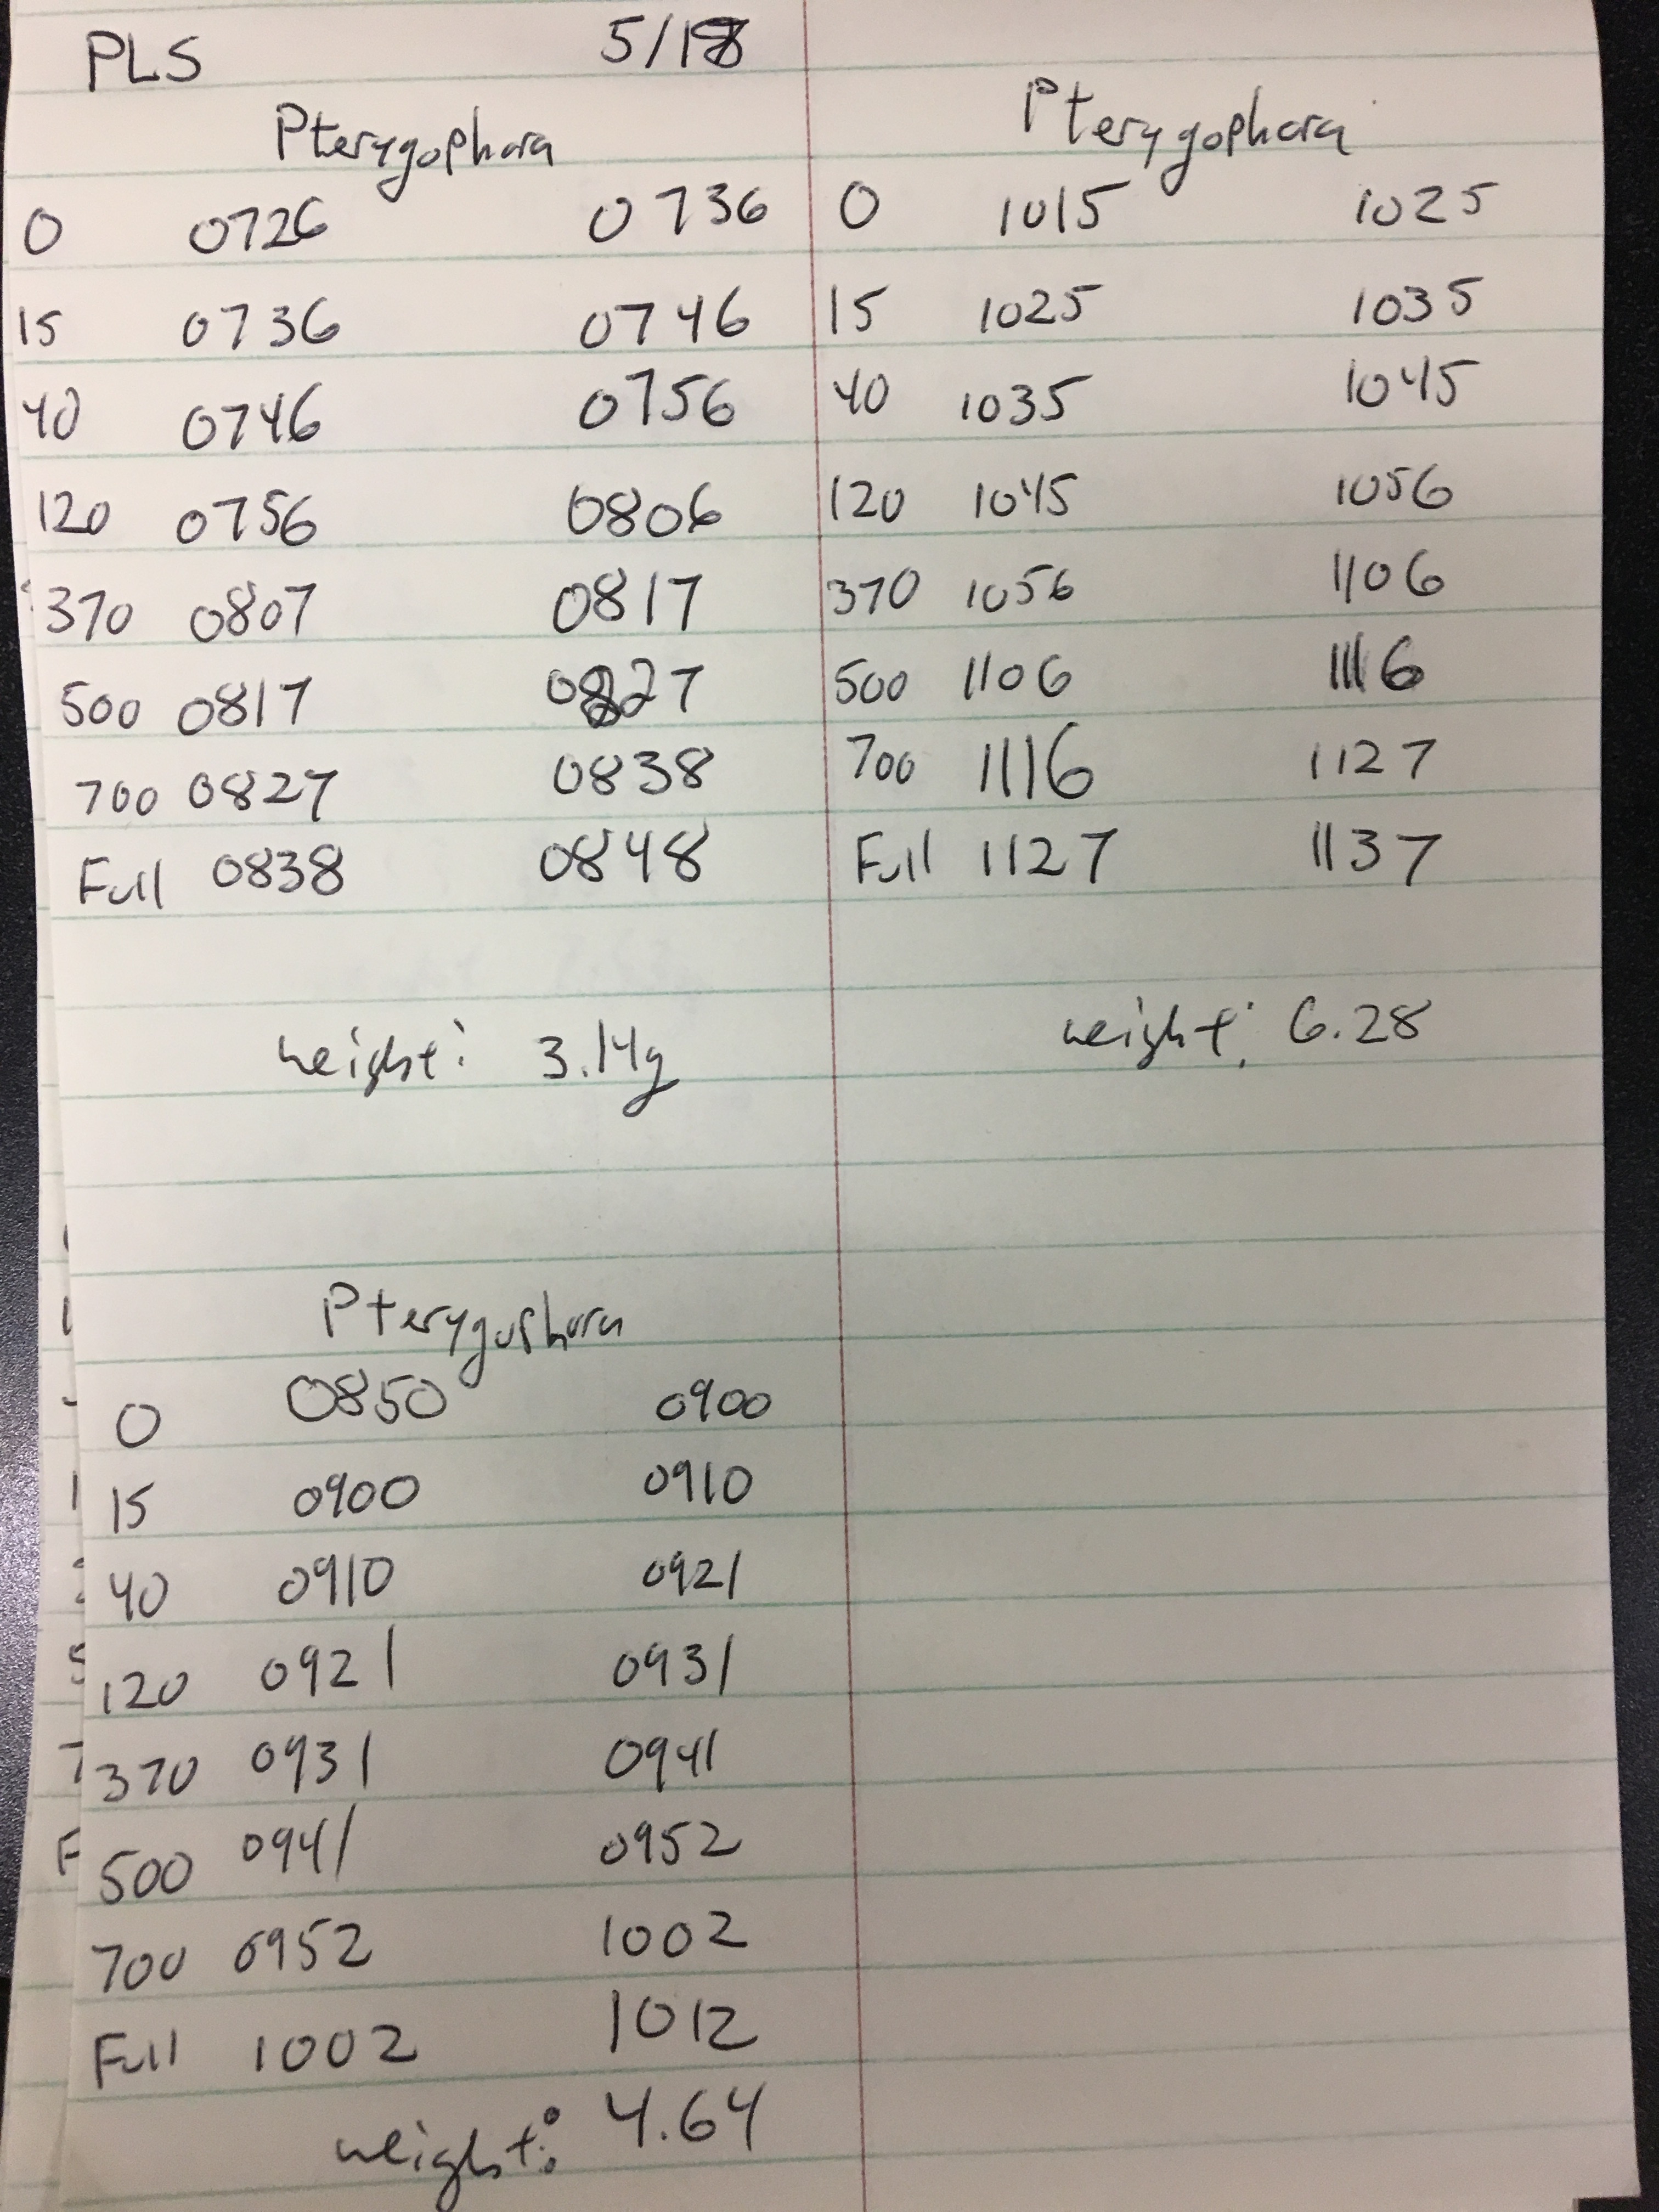 PLS 5/18
Pterygophora
0 0726 0736
15 0736 0746
40 0746 0756
120 0756 0806
370 0807 0817
500 0817 0827
700 0827 0838
Full 0838 0848
weight: 3.14g
Pterygophora
0 0850 0900
15 0900 0910
40 0910 0921
120 0921 0931
370 0931 0941
500 0941 0952
700 0952 1002
Full 1002 1012
weight: 4.64
Pterygophora
0 1015 1025
15 1025 1035
40 1035 1045
120 1045 1056
370 1056 1106
500 1106 1116
700 1116 1127
Full 1127 1137
weight: 6.28